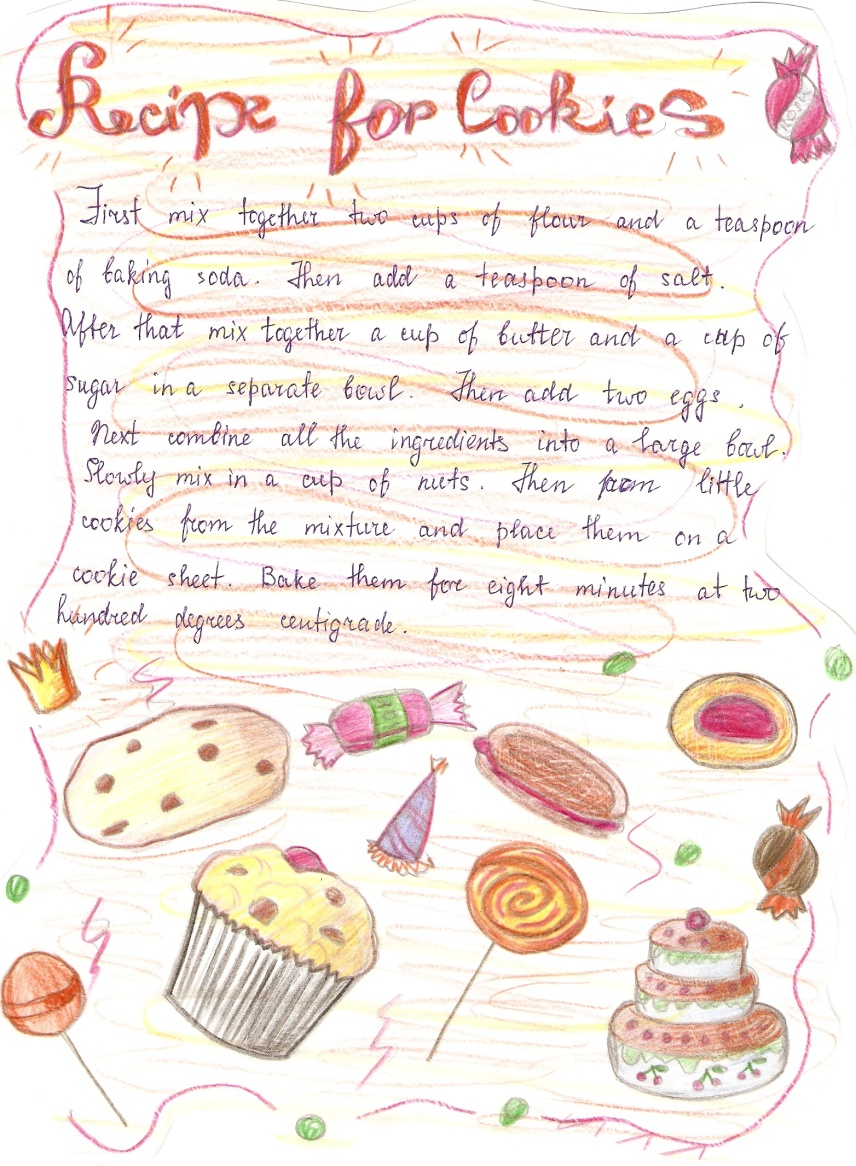 Recipe for Cookies
First mix together two cups of flour and a teaspoon
of baking soda. Then add a teaspoon of salt.
After that mix together a cup of butter and a cup of
sugar in a separate bowl. Then add two eggs.
Next combine all the ingredients into a large bowl.
Slowly mix in a cup of nuts. Then form little
cookies from the mixture and place them on a
cookie sheet. Bake them for eight minutes at two
hundred degrees centigrade.